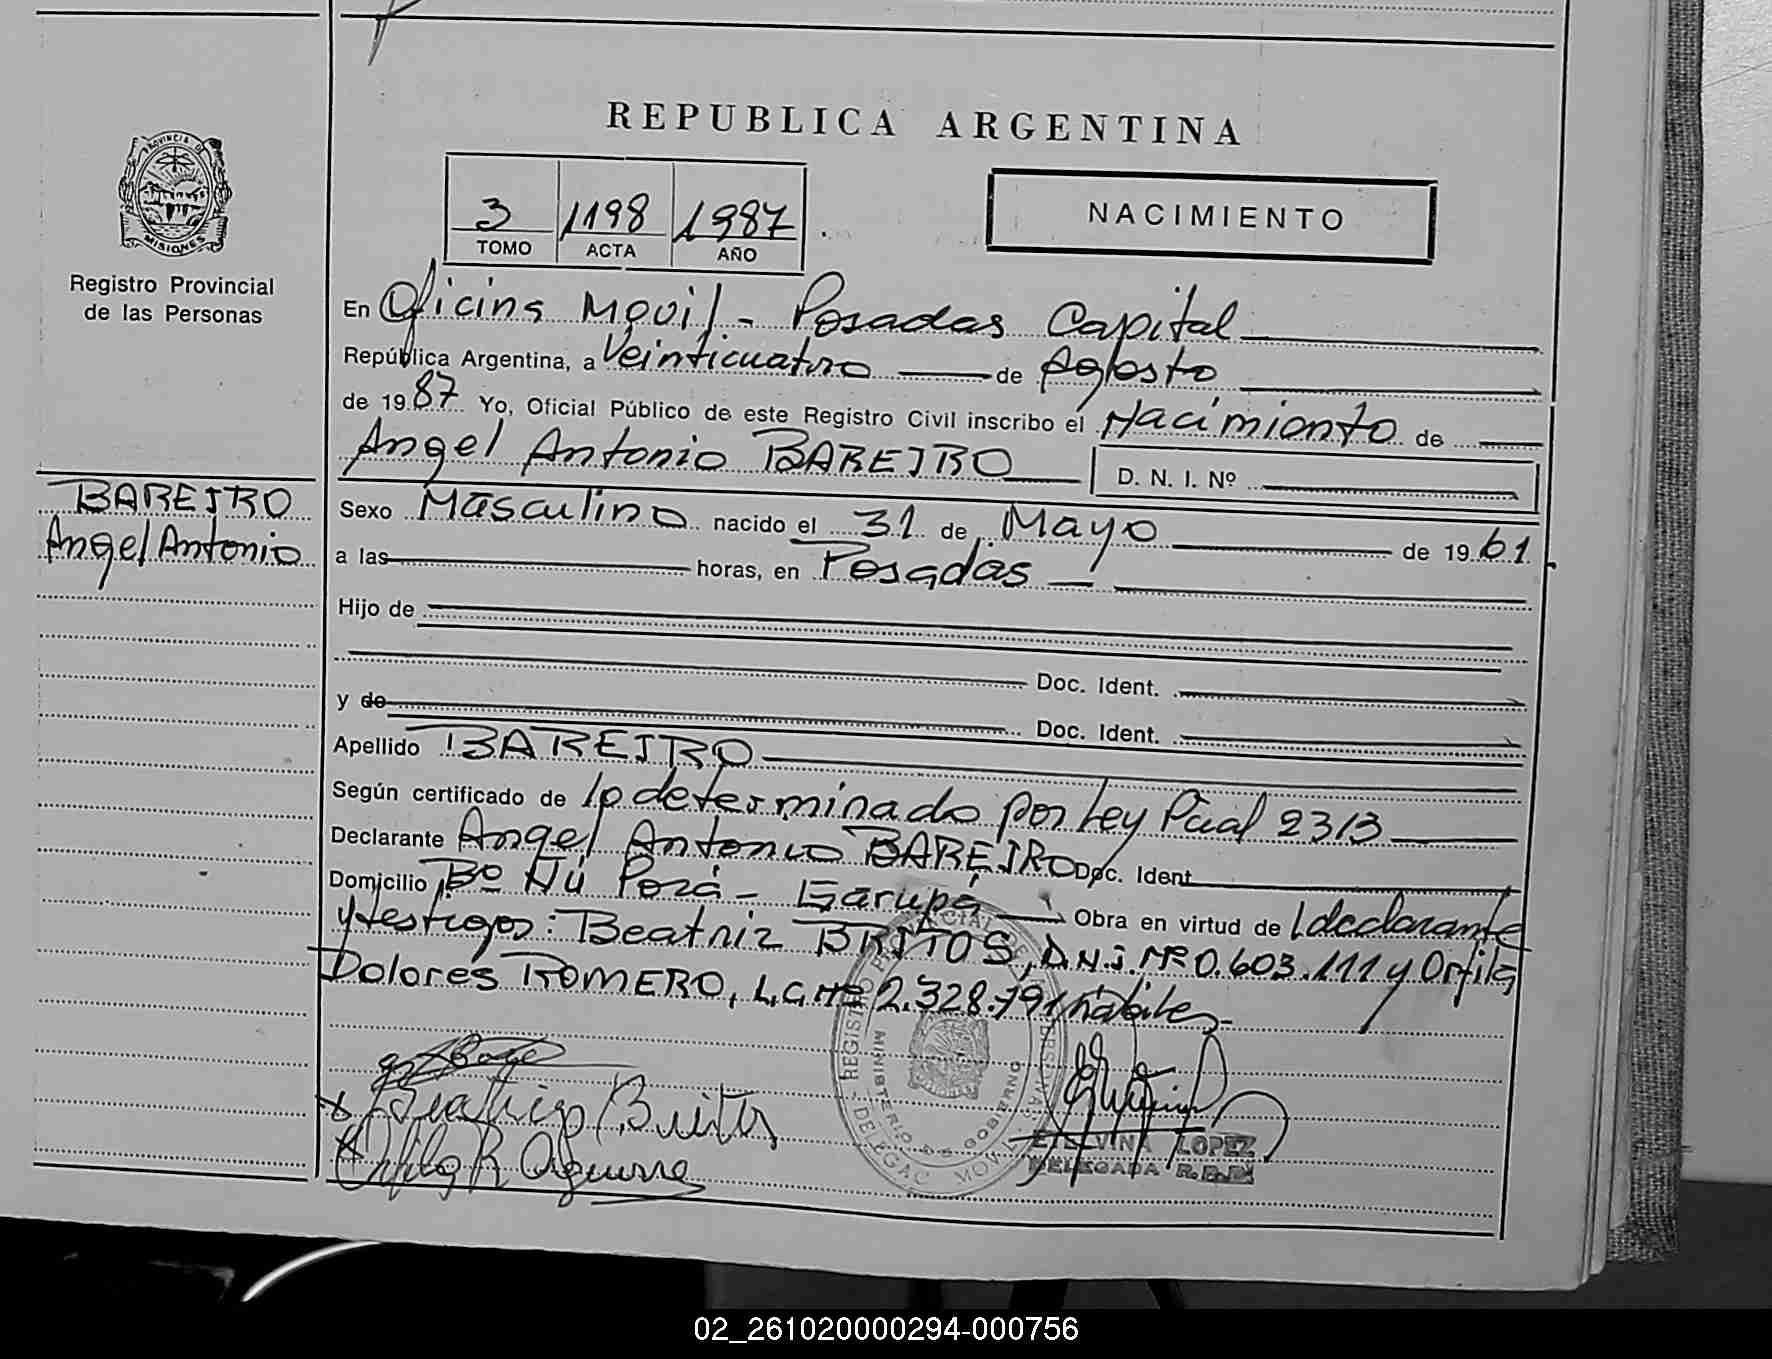 REPUBLICA ARGENTINA
PROVINCIA D
MISIONES
Registro Provincial
de las Personas
3 1198 1987
TOMO ACTA AÑO
NACIMIENTO
En Oficina Movil - Posadas Capital
República Argentina, a Veinticuatro de Agosto
de 1987 Yo, Oficial Público de este Registro Civil inscribo el Nacimiento de
Angel Antonio BAREIRO D. N. I. Nº
BAREIRO
Angel Antonio
Sexo Masculino nacido el 31 de Mayo de 1961
a las horas, en Posadas
Hijo de
Doc. Ident.
y de
Doc. Ident.
Apellido BAREIRO
Según certificado de lo determinado por Ley Pcial 2313
Declarante Angel Antonio BAREIRO Doc. Ident
Domicilio Bº Ñú Porá - Garupá Obra en virtud de l declarante
y testigos: Beatriz BRITOS, D.N.I. Nº 0.603.111 y Orfila
Dolores ROMERO, L.C. Nº 2.328.791 hábiles-
Beatriz Britos
Orfila R Aguirre
REGISTRO PROVINCIAL DE
MINISTERIO DE GOBIERNO
DELEGAC MOVIL
ETELVINA LOPEZ
DELEGADA R.P.P.
02_261020000294-000756